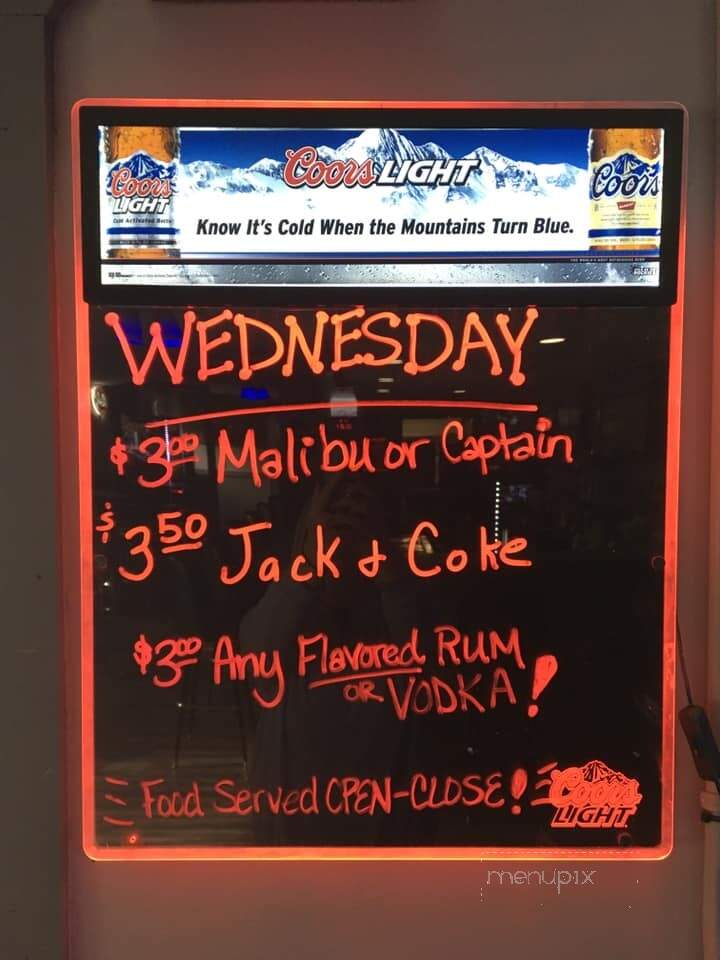 Coors LIGHT
Coors
LIGHT
Coors
Know It's Cold When the Mountains Turn Blue.
WEDNESDAY
$3.00 Malibu or Captain
$3.50 Jack & Coke
$3.00 Any Flavored RUM
OR VODKA!
Food Served OPEN-CLOSE!
Coors
LIGHT
menupix